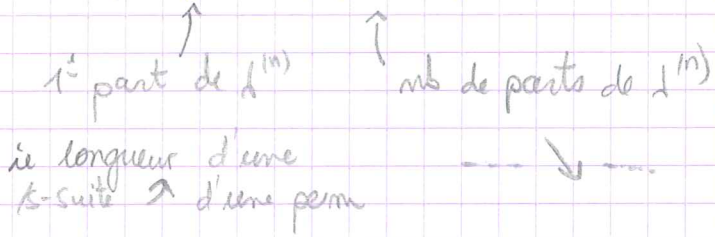 1è part de λ⁽ⁿ⁾ nb de parts de λ⁽ⁿ⁾
ie longueur d'une ---- ↘ ----
s-suite ↗ d'une perm